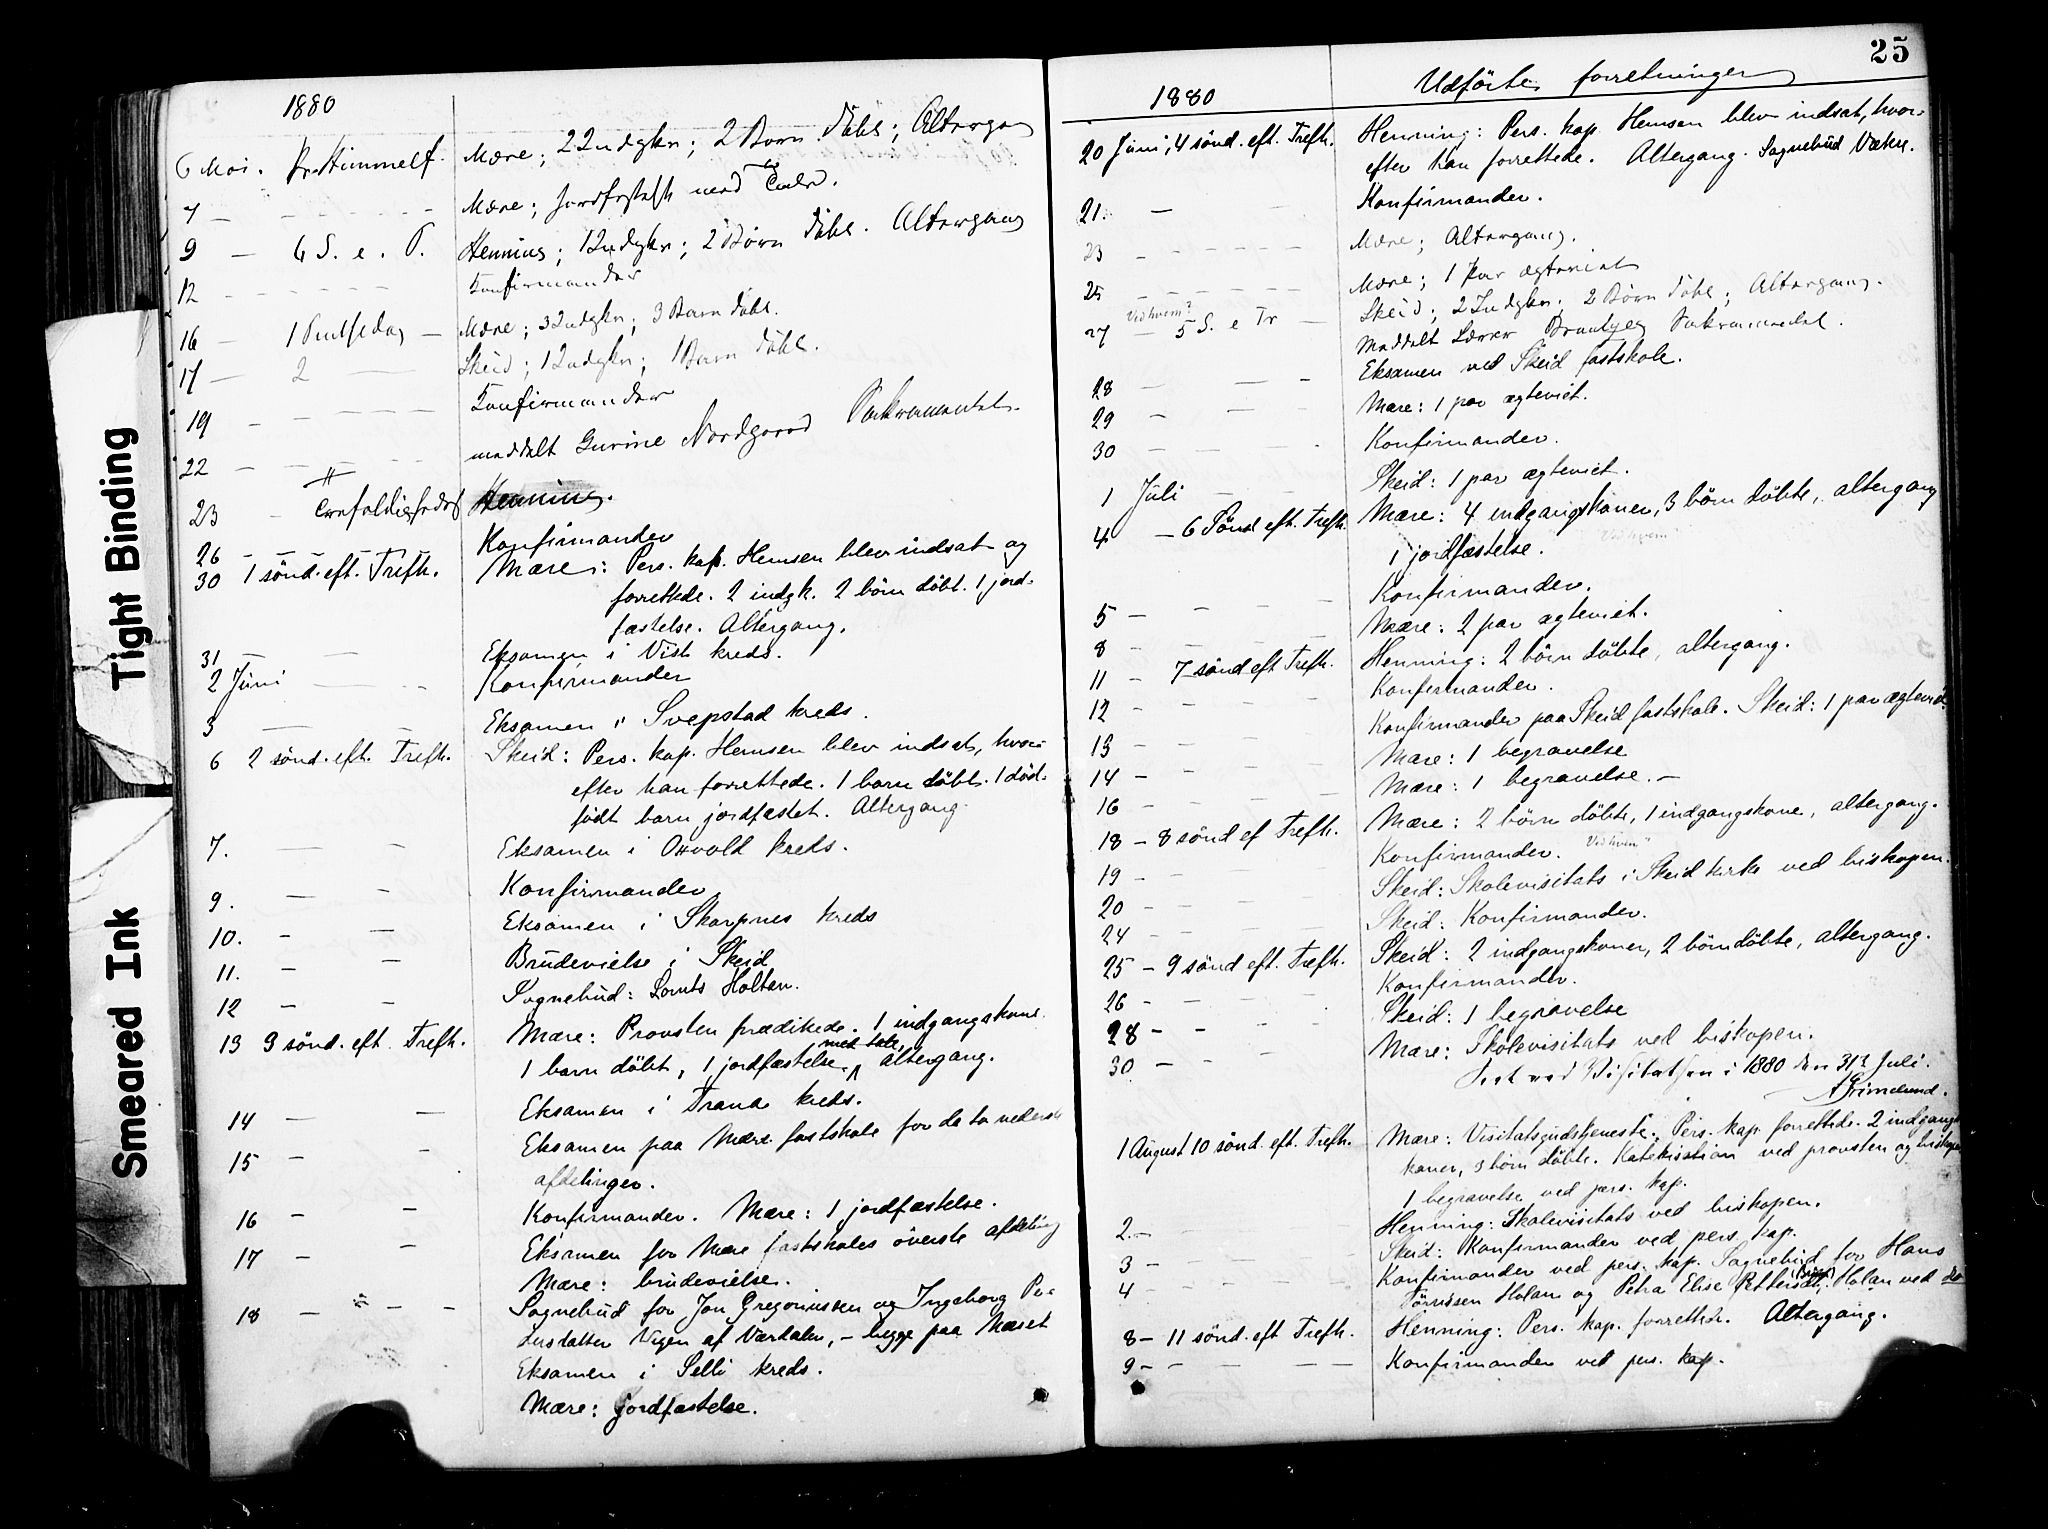 Tight Binding
Smeared Ink
1880
6 Mai. Kr. Himmelf. Mære; 2 Indgkr; 2 Børn døbt; Altergang
7 — Mære; Jordfæstelse med Tale.
9 — 6 S. e. P. Henning; 1 Indgkr; 2 Børn døbt. Altergang
12 — Konfirmander
16 — 1 Pintsedag — Mære; 3 Indgkr; 3 Børn døbt.
17 — 2 — Skeid; 1 Indgkr; 1 Barn døbt.
19 — Konfirmander
22 — meddelt Gurine Nordgaard Sakramentet.
23 — Trefoldighedsf Henning.
26 — Konfirmander
30 1 sönd. eft. Trefh. Mære: Pers. kap. Hemsen blev indsat og
forrettede. 2 indgk. 2 börn döbt. 1 jord-
fæstelse. Altergang.
31 — Eksamen i Vist kreds.
2 Juni — Konfirmander
3 — Eksamen i Svepstad kreds.
6 2 sönd. eft. Trefh. Skeid: Pers. kap. Hemsen blev indsat, hvor-
efter han forrettede. 1 barn döbt. 1 död-
födt barn jordfæstet. Altergang.
7. — Eksamen i Oxvold kreds.
9. — Konfirmander
10. — Eksamen i Skarpnes kreds
11. — Brudevielse i Skeid
12 — Sognebud: Lornts Holten.
13 3 sönd. eft. Trefh. Mære: Provsten prædikede. 1 indgangskone
1 barn döbt, 1 jordfæstelse med tale, altergang.
14 — Eksamen i Trana kreds.
15 — Eksamen paa Mære fastskole for de to nederste
afdelinger.
16 — Konfirmander. Mære: 1 jordfæstelse.
17 — Eksamen for Mære fastskoles överste afdeling
Mære: brudevielse.
18 — Sognebud for Jon Gregoriussen og Ingeborg Pe-
dersdatter Vigen af Værdalen, — begge paa Mæret
Eksamen i Selli kreds.
Mære: jordfæstelse.
25
1880 Udförte forretninger
20 Juni, 4 sönd. eft. Trefh. Henning: Pers. kap. Hemsen blev indsat, hvor-
efter han forrettede. Altergang. Sognebud Vækse.
21. — Konfirmander.
23 — Mære; Altergang.
25 — Mære; 1 par ægteviet
Ved hvem?
27 — 5 S. e Tr — Skeid; 2 Indgkr; 2 Börn döbt; Altergang.
meddelt Lærer Sakramentet.
28 — Eksamen ved Skeid fastskole.
29 — Mære: 1 par ægteviet.
30 — Konfirmander.
1 Juli — Skeid: 1 par ægteviet.
4 — 6 Sönd eft. Trefh. Mære: 4 indgangskoner, 3 börn döbte, altergang
1 jordfæstelse. Ved hvem
5 — Konfirmander.
8 — Mære: 2 par ægteviet.
11 — 7 sönd eft Trefh. Henning: 2 börn döbte, altergang.
12 — Konfirmander.
13 — Konfirmander paa Skeid fastskole. Skeid: 1 par ægteviet
14 — Mære: 1 begravelse
16 — Mære: 1 begravelse. —
18 — 8 sönd ef Trefh. Mære: 2 börn döbte, 1 indgangskone, altergang.
19 — Konfirmander. Ved hvem?
20 — Skeid: Skolevisitats i Skeid kirke ved biskopen.
24 — Skeid: Konfirmander.
25 — 9 sönd eft. Trefh. Skeid: 2 indgangskoner, 2 börn döbte, altergang.
26 — Konfirmander.
28 — Skeid: 1 begravelse
30 — Mære: Skolevisitats ved biskopen.
Seet ved Visitatsen i 1880 den 31te Juli.
A Grimelund.
1 August 10 sönd. eft. Trefh. Mære: Visitatsgudstjeneste. Pers. kap. forrettede. 2 indgangs
koner, 3 börn döbte. Katekisation ved provsten og biskopen
1 begravelse ved pers. kap.
2. — Henning: Skolevisitats ved biskopen.
3 — Skeid: Konfirmander ved pers. kap.
4 — Konfirmander ved pers. kap. Sognebud for Hans
Holan og Petra Elise Petters Holan ved
8 — 11 sönd. eft Trefh. Henning: Pers. kap. forrettede. Altergang.
9 — Konfirmander ved pers. kap.